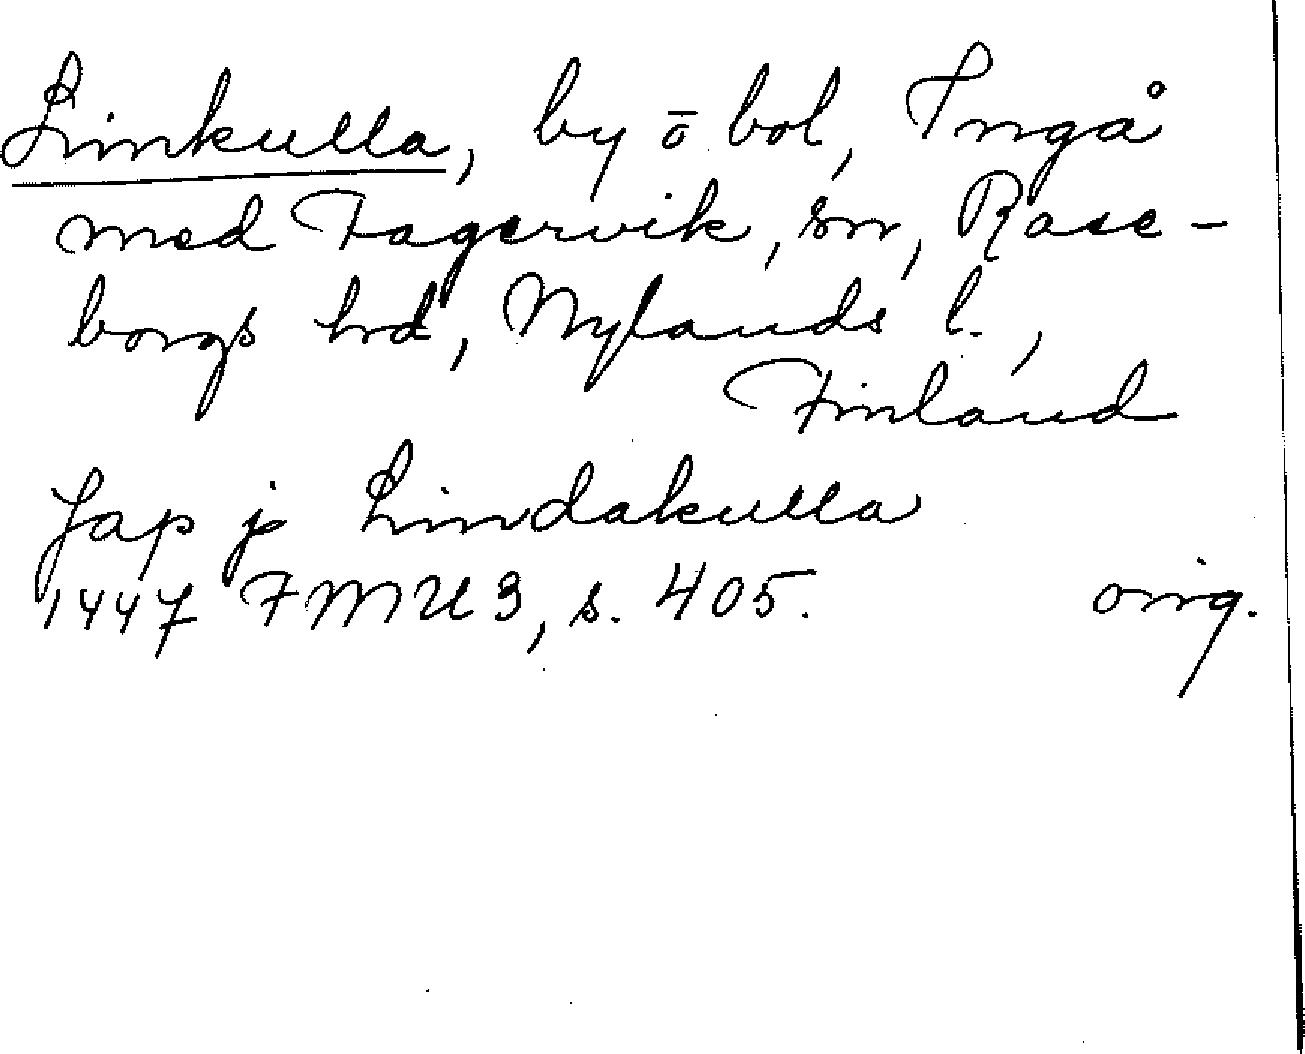 Linkulla, by ō bol, Ingå
med Fagervik, sn, Rase-
borgs hrd, Nylands l.,
Finland
Jap j Lindakulla
1447 FMU 3, s. 405. orig.